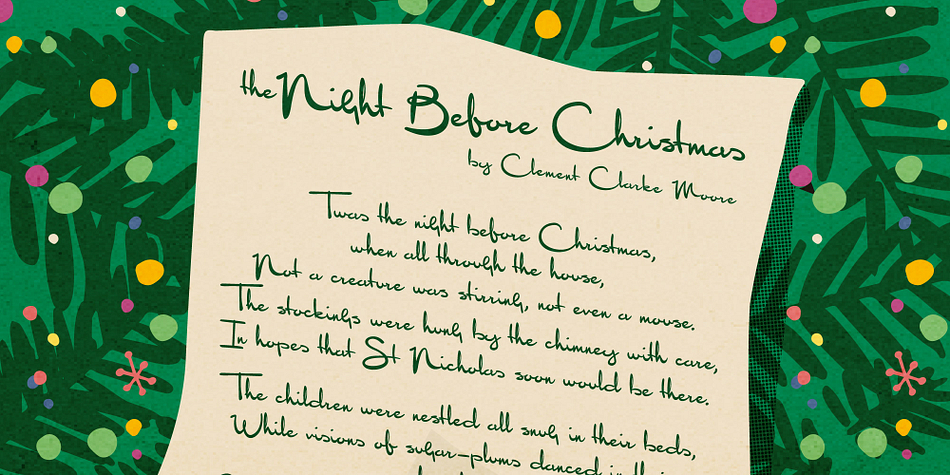 the Night Before Christmas
by Clement Clarke Moore
Twas the night before Christmas,
when all through the house,
Not a creature was stirring, not even a mouse.
The stockings were hung by the chimney with care,
In hopes that St Nicholas soon would be there.
The children were nestled all snug in their beds,
While visions of sugar-plums danced in their